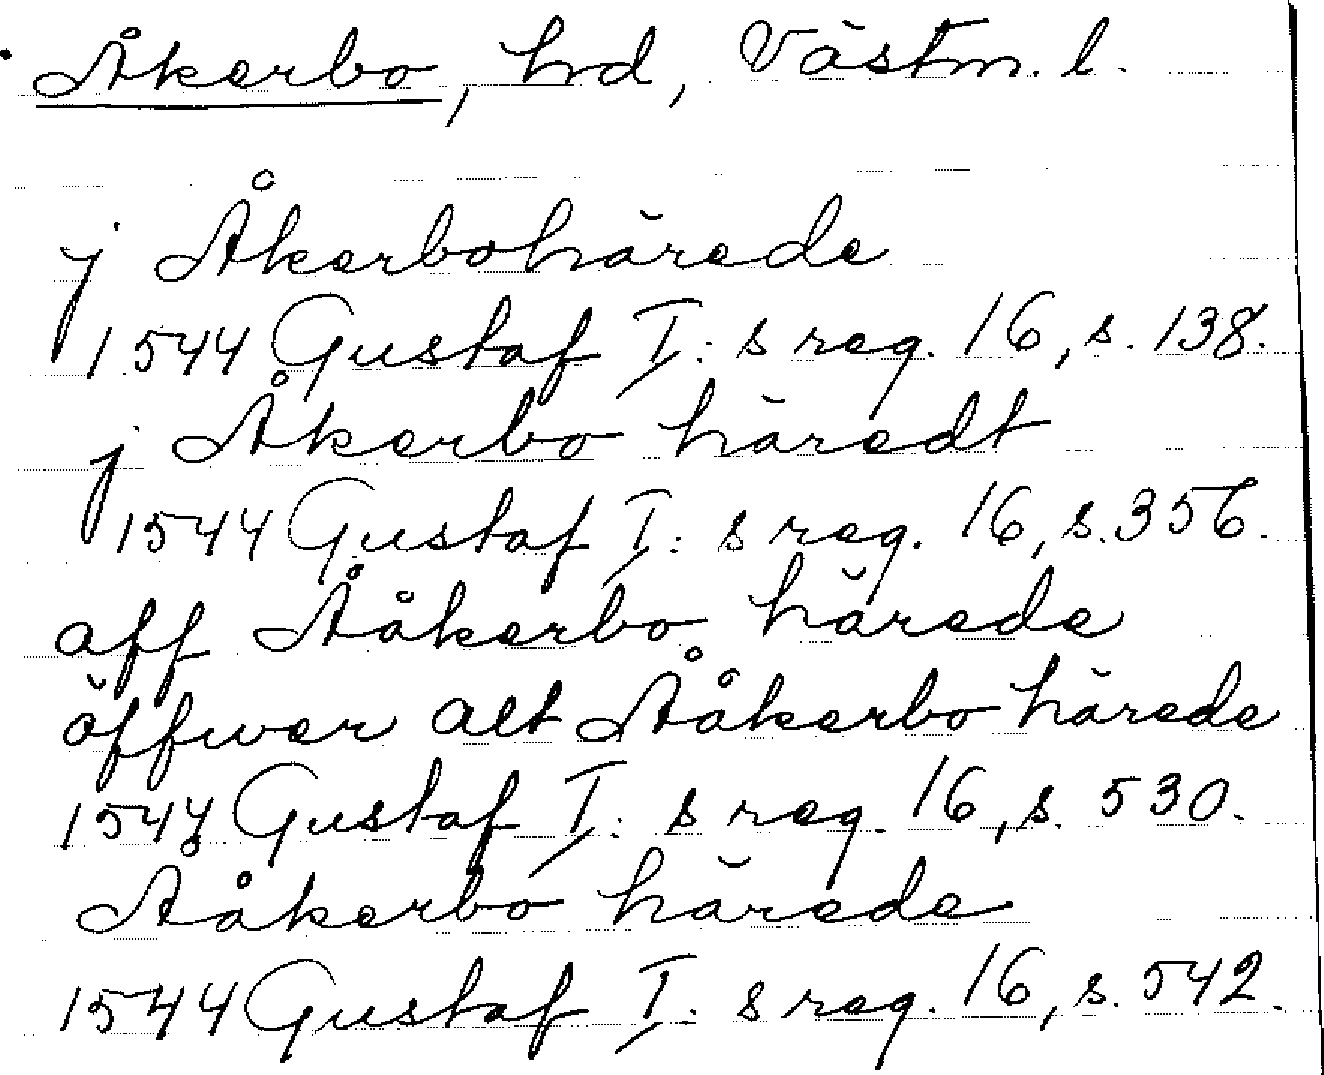 Åkerbo, hd, Västm. l.
j Åkerbohärede
1544 Gustaf I:s reg. 16, s. 138.
j Åkerbo häredt
1544 Gustaf I:s reg. 16, s. 356.
aff Ååkerbo härede
öffwer alt Ååkerbo härede
1544 Gustaf I:s reg. 16, s. 530.
Ååkerbo härede
1544 Gustaf I:s reg. 16, s. 542.